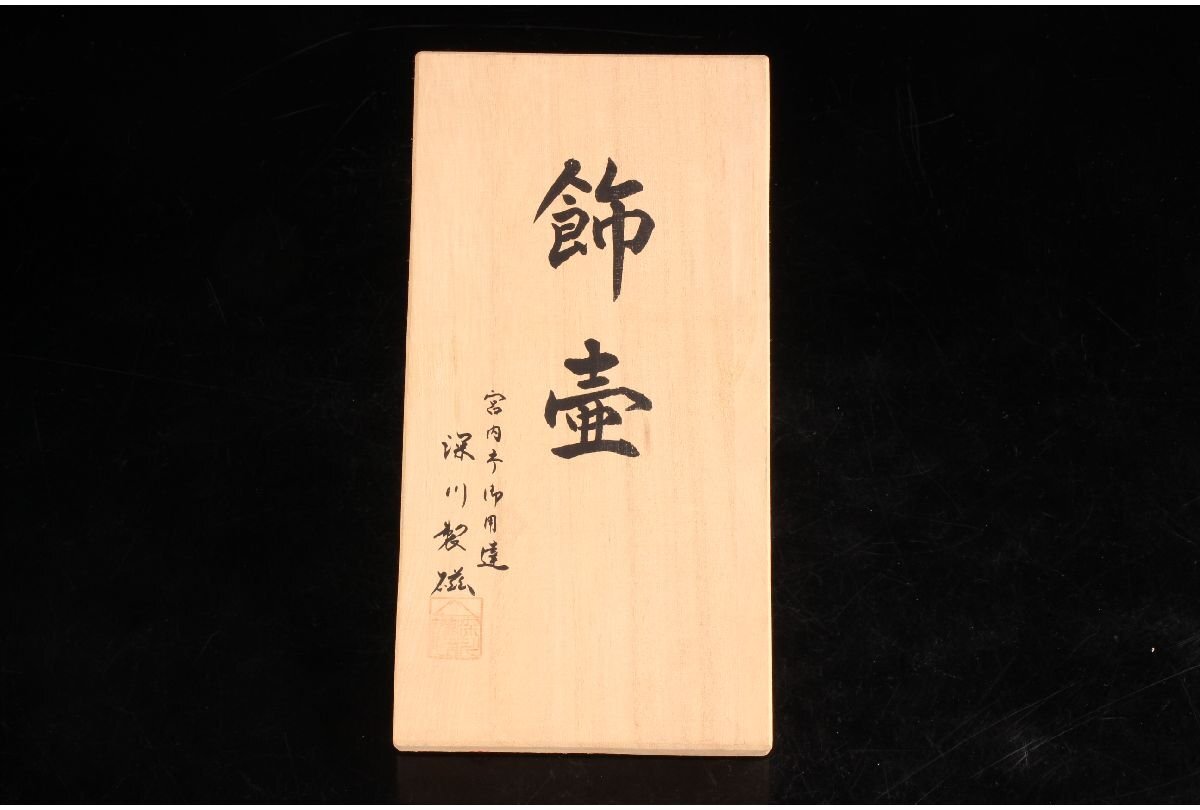 飾壷
宮内庁御用達
深川製磁